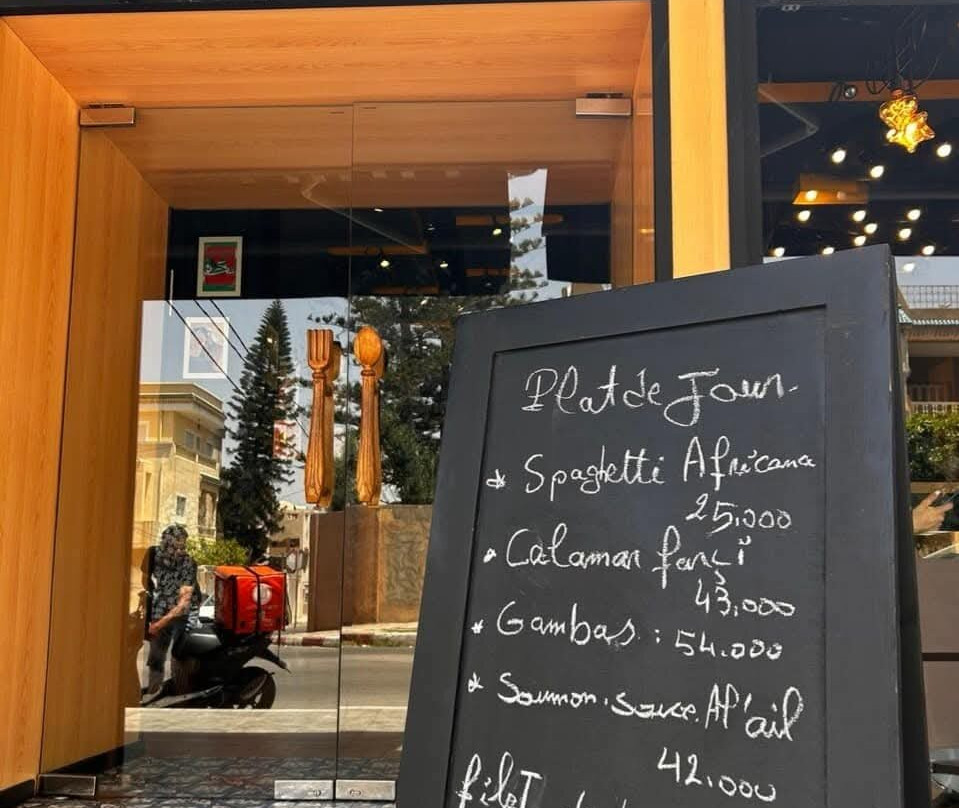 Plat de Jour
* Spaghetti Africana
25,000
* Calamar farçi
43,000
* Gambas : 54.000
* Saumon. sauce. Al'ail
42.000
filet